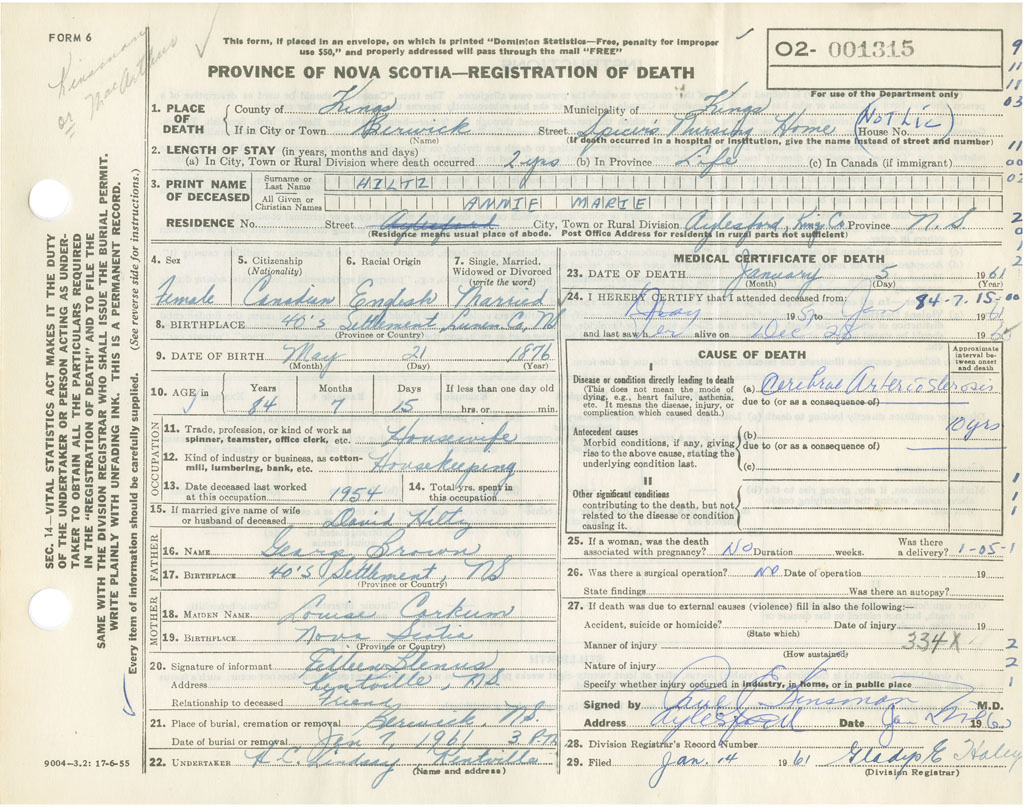 FORM 6
Kinsman
or MacArthur
This form, if placed in an envelope, on which is printed "Dominion Statistics—Free, penalty for improper
use $50," and properly addressed will pass through the mail "FREE"
PROVINCE OF NOVA SCOTIA—REGISTRATION OF DEATH
O2- 001315
For use of the Department only
1. PLACE OF DEATH
County of Kings Municipality of Kings
If in City or Town Berwick Street Spicer's Nursing Home House No. (Not Lic)
(Name) (If death occurred in a hospital or institution, give the name instead of street and number)
2. LENGTH OF STAY (in years, months and days)
(a) In City, Town or Rural Division where death occurred 2 yrs (b) In Province Life (c) In Canada (if immigrant)
3. PRINT NAME OF DECEASED
Surname or Last Name HILTZ
All Given or Christian Names ANNIE MARIE
RESIDENCE No. Street Aylesford City, Town or Rural Division Aylesford, King Co. Province N.S.
(Residence means usual place of abode. Post Office Address for residents in rural parts not sufficient)
4. Sex
Female
5. Citizenship
(Nationality)
Canadian
6. Racial Origin
English
7. Single, Married, Widowed or Divorced
(write the word)
Married
8. BIRTHPLACE 40's Settlement, Lunen Co, NS
(Province or Country)
9. DATE OF BIRTH May 21 1876
(Month) (Day) (Year)
10. AGE in
Years Months Days If less than one day old
84 7 15 hrs. or min.
OCCUPATION
11. Trade, profession, or kind of work as spinner, teamster, office clerk, etc. Housewife
12. Kind of industry or business, as cotton-mill, lumbering, bank, etc. Housekeeping
13. Date deceased last worked at this occupation 1954
14. Total yrs. spent in this occupation
15. If married give name of wife or husband of deceased David Hiltz
FATHER
16. NAME George Brown
17. BIRTHPLACE 40's Settlement, NS
(Province or Country)
MOTHER
18. MAIDEN NAME Louise Corkum
19. BIRTHPLACE Nova Scotia
(Province or Country)
20. Signature of informant Eileen Slenus
Address Kentville, N.S.
Relationship to deceased Friend
21. Place of burial, cremation or removal Berwick, N.S.
Date of burial or removal Jan 7, 1961 3 P.M.
22. UNDERTAKER H.C. Lindsay Kentville
(Name and address)
MEDICAL CERTIFICATE OF DEATH
23. DATE OF DEATH January 5 1961
(Month) (Day) (Year)
84-7-15-00
24. I HEREBY CERTIFY that I attended deceased from:
19 to Jan 1961
and last saw her alive on Dec 28 1960
CAUSE OF DEATH
Approximate interval between onset and death
I
Disease or condition directly leading to death
(This does not mean the mode of dying, e.g., heart failure, asthenia, etc. It means the disease, injury, or complication which caused death.)
(a) Cerebral Arteriosclerosis
due to (or as a consequence of)
10 yrs
Antecedent causes
Morbid conditions, if any, giving rise to the above cause, stating the underlying condition last.
(b)
due to (or as a consequence of)
(c)
II
Other significant conditions
contributing to the death, but not related to the disease or condition causing it.
25. If a woman, was the death associated with pregnancy? No Duration weeks. Was there a delivery? 1-05-1
26. Was there a surgical operation? No Date of operation 19
State findings Was there an autopsy?
27. If death was due to external causes (violence) fill in also the following:—
Accident, suicide or homicide? Date of injury 19
(State which)
334X
Manner of injury
(How sustained)
Nature of injury
Specify whether injury occurred in industry, in home, or in public place
Signed by Kinsman M.D.
Address Aylesford Date Jan 19
28. Division Registrar's Record Number
29. Filed Jan. 14 1961 Gladys E Haley
(Division Registrar)
SEC. 14—VITAL STATISTICS ACT MAKES IT THE DUTY
OF THE UNDERTAKER OR PERSON ACTING AS UNDER-
TAKER TO OBTAIN ALL THE PARTICULARS REQUIRED
IN THE "REGISTRATION OF DEATH" AND TO FILE THE
SAME WITH THE DIVISION REGISTRAR WHO SHALL ISSUE THE BURIAL PERMIT.
WRITE PLAINLY WITH UNFADING INK. THIS IS A PERMANENT RECORD.
Every item of information should be carefully supplied. (See reverse side for instructions.)
9004—3.2: 17-6-55